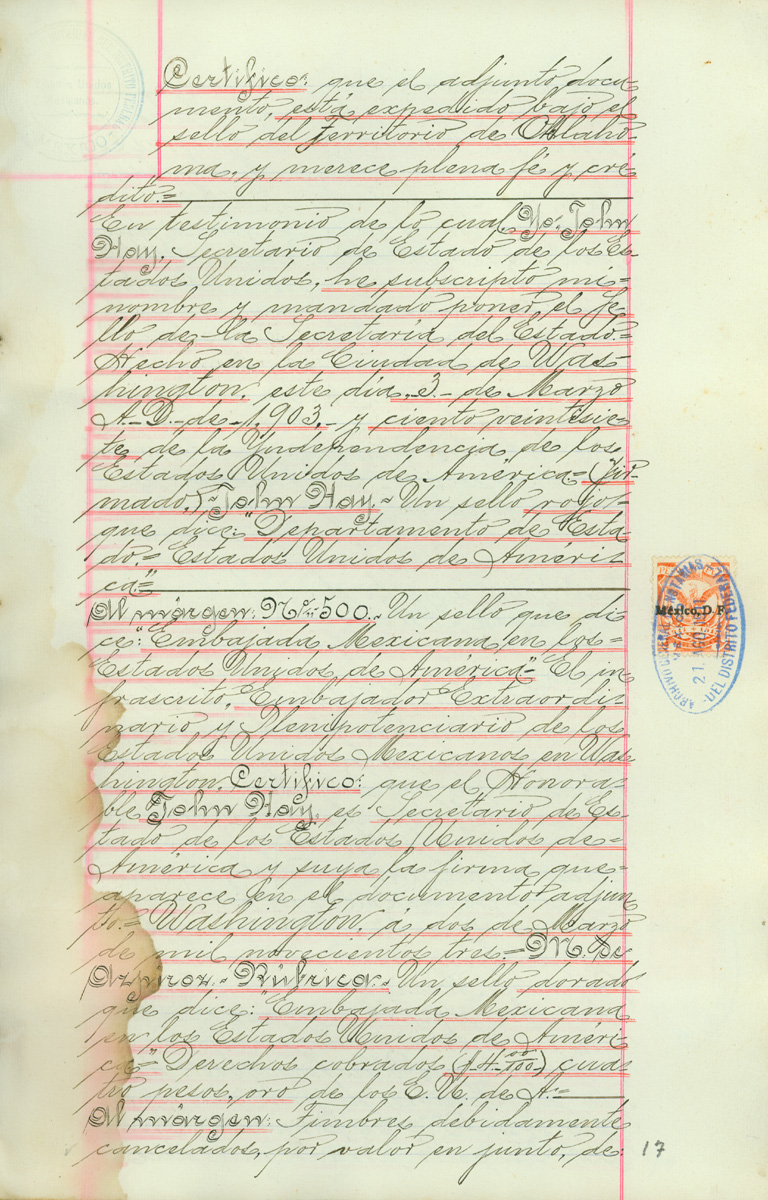 Certifico: que el adjunto docu-
mento, está expedido bajo el
sello del Territorio de Oklaho-
ma, y merece plena fé y cré-
dito.=
En testimonio de lo cual, Yo, John
Hay, Secretario de Estado de los Es-
tados Unidos, he subscripto mi-
nombre y mandado poner el se-
llo de la Secretaría del Estado.=
Hecho en la Ciudad de Was-
hington, este día, 3 - de Marzo
A.- D.- de - 1,903, - y ciento veintisie-
te de la Yndependencia de los
Estados Unidos de América= (Fir-
mado,) - John Hay.- Un sello rojo-
que dice: "Departamento de Esta-
do.= Estados Unidos de Améri-
ca="
Al márgen: Nº-500.- Un sello que di-
ce: "Embajada Mexicana en los=
Estados Unidos de América=" El in-
frascrito, Embajador Extraordi-
nario y Plenipotenciario de los
Estados Unidos Mexicanos en Was-
hington, Certifico: que el Honora-
ble John Hay, es Secretario de Es-
tado de los Estados Unidos de=
América y suya la firma que-
aparece en el documento adjun-
to.= Washington, á dos de Marzo
de mil novecientos tres.= M. de
Azpiroz.- Rúbrica.- Un sello dorado
que dice: "Embajada Mexicana
en los Estados Unidos de Améri-
ca=" Derechos cobrados ($4 00/100) cua-
tro pesos, oro de los E. U. de A.=
Al márgen: Timbres debidamente
cancelados, por valor en junto, de:
17
México, D. F.
ARCHIVO GENERAL DE NOTARIAS
21 AGO
DEL DISTRITO FEDERAL